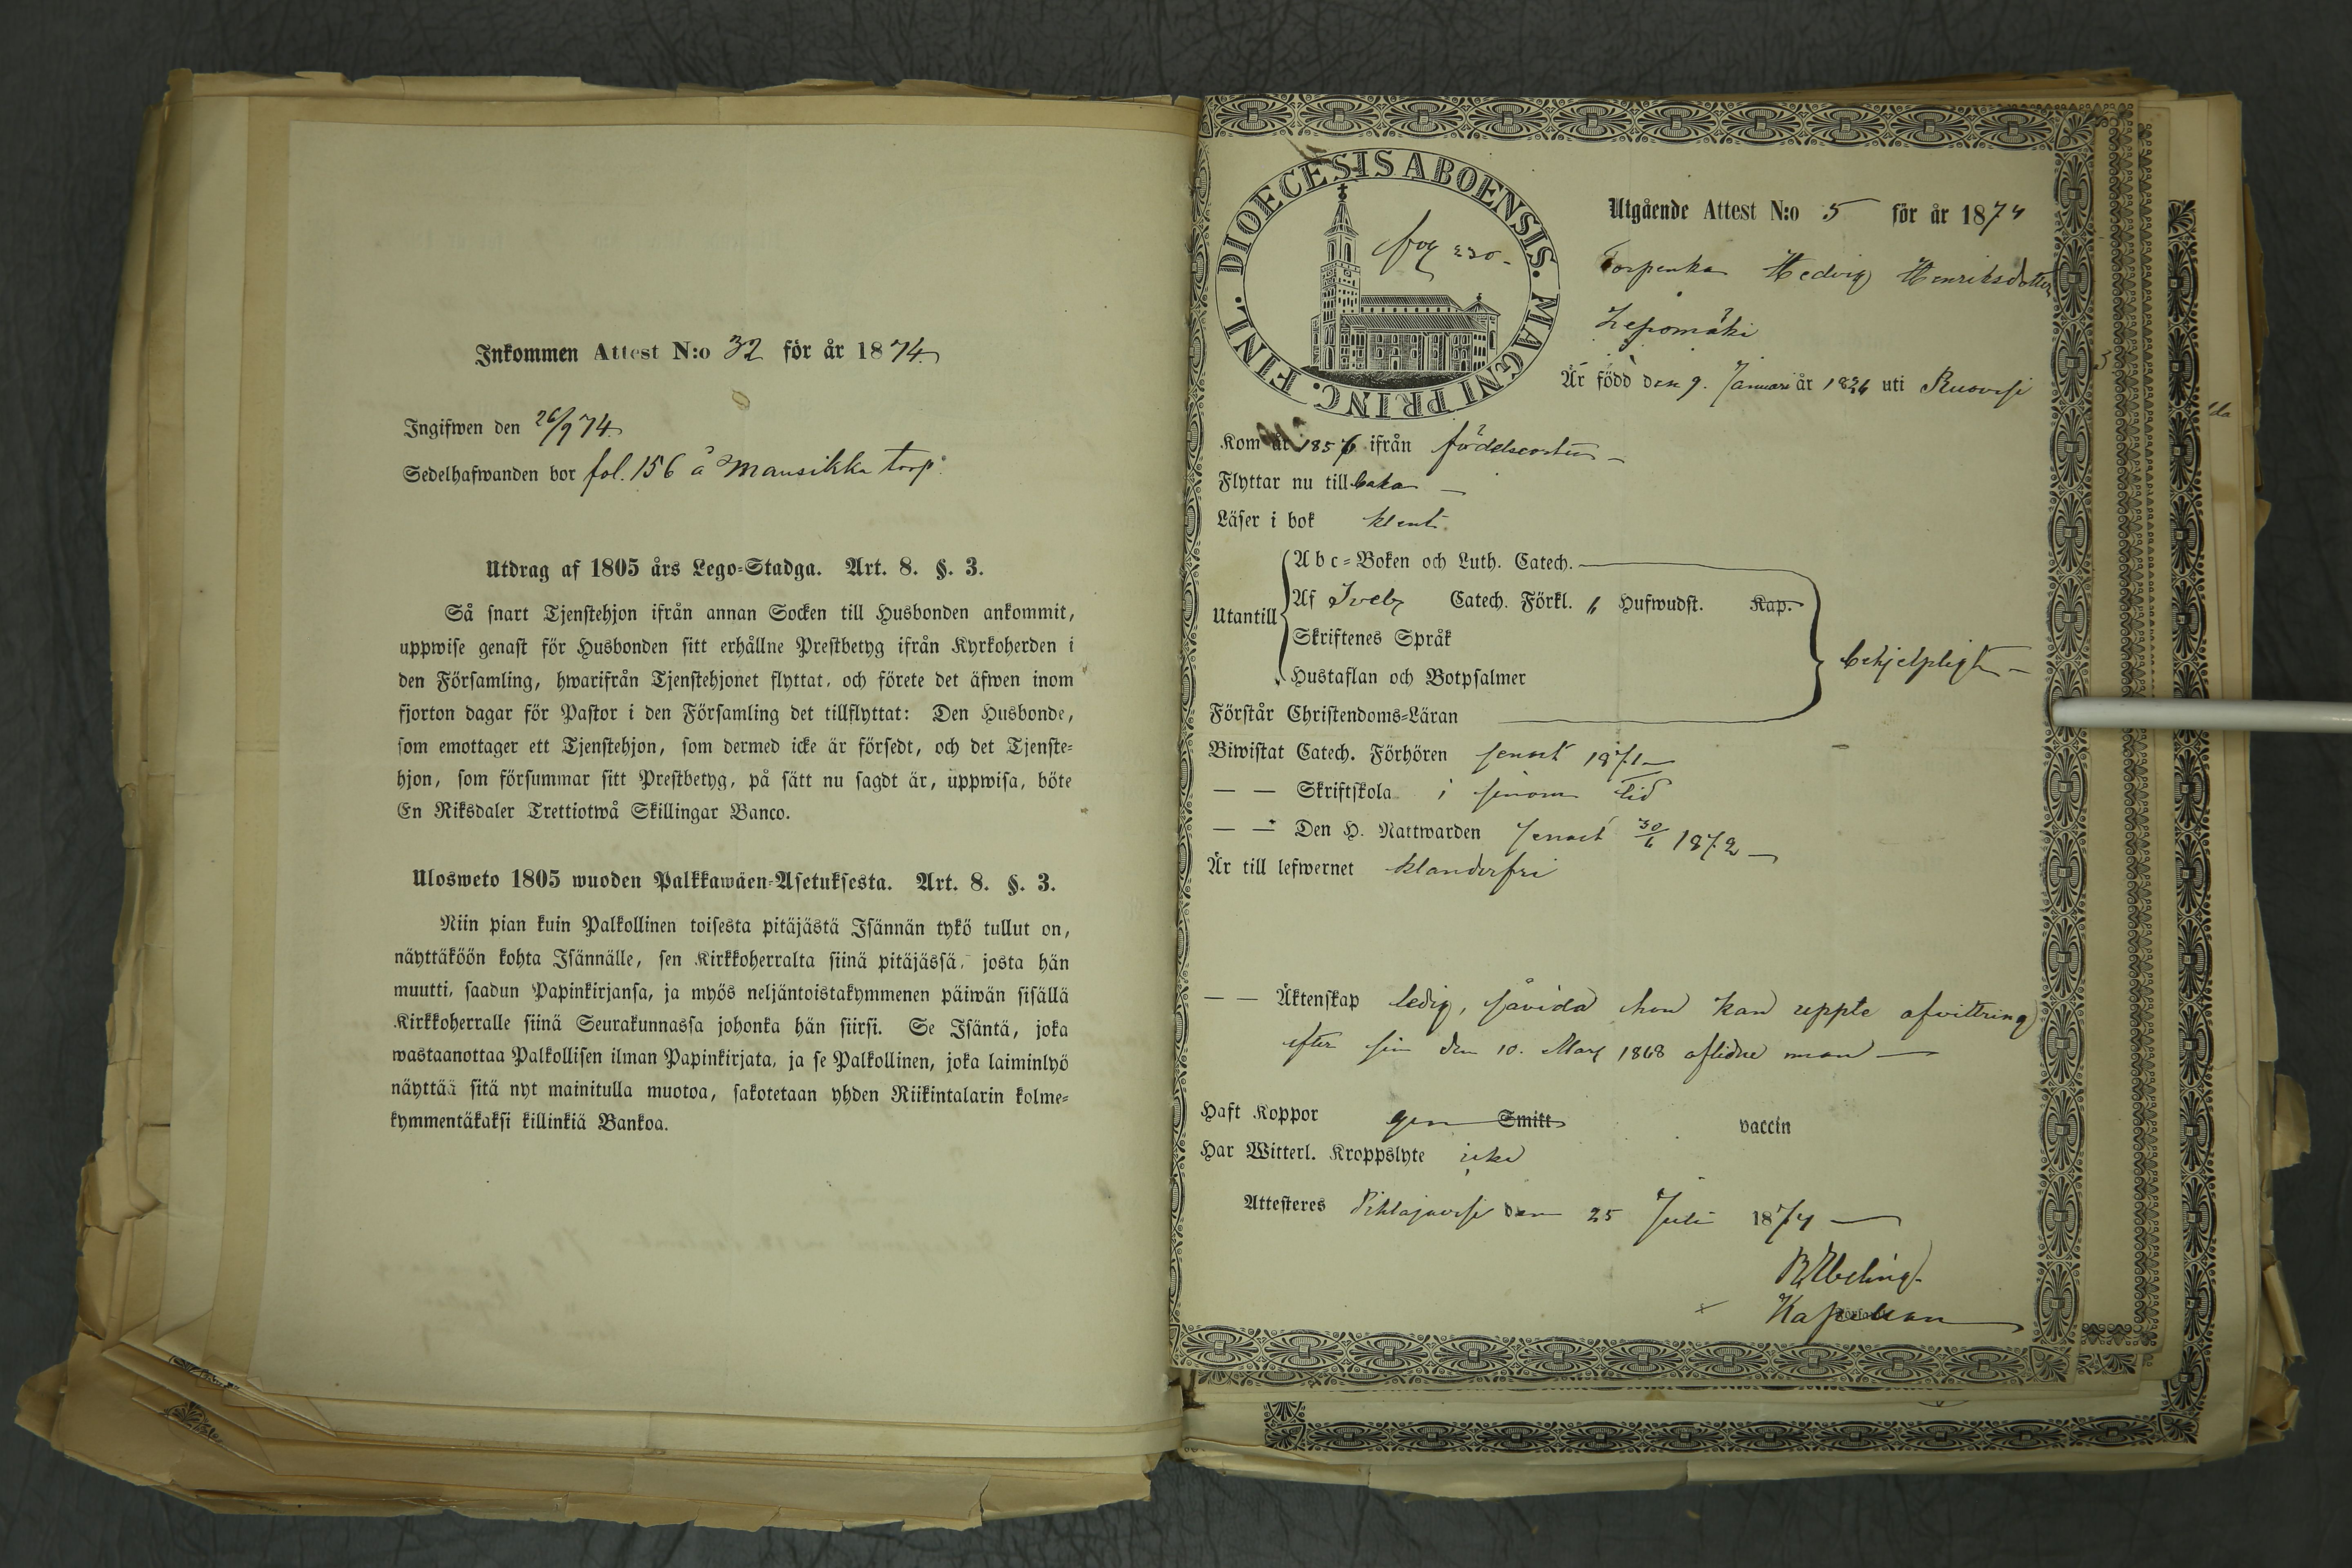 Inkommen Attest N:o 32 för år 1874
Ingifwen den 26/9 74.
Sedelhafwanden bor fol. 156 å Mansikka torp.
Utdrag af 1805 års Lego-Stadga. Art. 8. §. 3.
Så snart Tjenstehjon ifrån annan Socken till Husbonden ankommit,
uppwise genast för Husbonden sitt erhållne Prestbetyg ifrån Kyrkoherden i
den Församling, hwarifrån Tjenstehjonet flyttat, och förete det äfwen inom
fjorton dagar för Pastor i den Församling det tillflyttat: Den Husbonde,
som emottager ett Tjenstehjon, som dermed icke är försedt, och det Tjenste-
hjon, som försummar sitt Prestbetyg, på sätt nu sagdt är, uppwisa, böte
En Riksdaler Trettiotwå Skillingar Banco.
Ulosweto 1805 wuoden Palkkawäen-Asetuksesta. Art. 8. §. 3.
Niin pian kuin Palkollinen toisesta pitäjästä Isännän tykö tullut on,
näyttäköön kohta Isännälle, sen Kirkkoherralta siinä pitäjässä, josta hän
muutti, saadun Papinkirjansa, ja myös neljäntoistakymmenen päiwän sisällä
Kirkkoherralle siinä Seurakunnassa johonka hän siirsi. Se Isäntä, joka
wastaanottaa Palkollisen ilman Papinkirjata, ja se Palkollinen, joka laiminlyö
näyttää sitä nyt mainitulla muotoa, sakotetaan yhden Riikintalarin kolme-
kymmentäkaksi killinkiä Bankoa.
DIOECESIS ABOENSIS. MAGNI PRINC. FINL.
pag 230.
Utgående Attest N:o 5 för år 1874
Torpenkan Hedvig Henriksdotter
Lepomäki
Är född den 9. Januari år 1826 uti Ruovesi
Kom år 1856 ifrån födelseorten
Flyttar nu tillbaka
Läser i bok klent
Utantill
Abc-Boken och Luth. Catech.
Af Sveb. Catech. Förkl. 6 Hufwudst. Kap.
Skriftenes Språk
Hustaflan och Botpsalmer
behjelpligt
Förstår Christendoms-Läran
Biwistat Catech. Förhören senast 1871
— — Skriftskola i sinom tid
— — Den H. Nattwarden senast 30/6 1872
Är till lefwernet klanderfri
— — Äktenskap ledig, såvida hon kan uppte afvittring
efter sin den 10. Mars 1868 aflidne man
Haft Koppor gen Smitt vaccin
Har Witterl. Kroppslyte icke
Attesteres Pihlajavesi den 25 Juli 1874
Kapellan